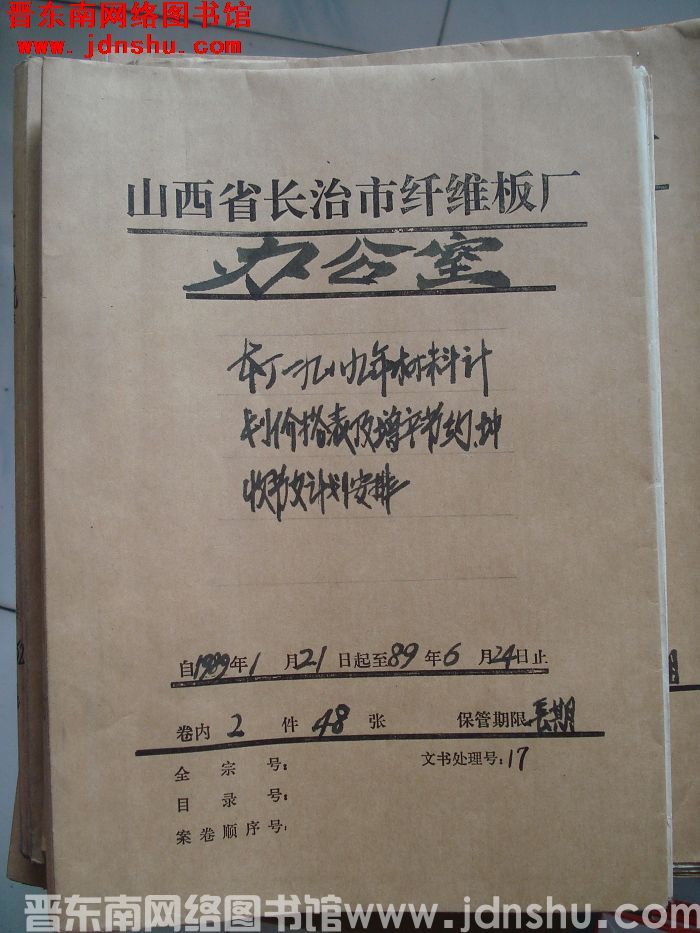 晋东南网络图书馆
www.jdnshu.com
山西省长治市纤维板厂
办公室
本厂一九八九年材料计
划价格表及增产节约,
收节支计划安排
自1989年1月21日起至89年6月24日止
卷内2件48张 保管期限:长期
全宗号: 文书处理号:17
目录号:
案卷顺序号:
晋东南网络图书馆 www.jdnshu.com